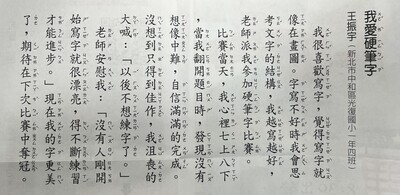 我愛硬筆字
王振宇（新北市中和區光復國小一年四班）
我很喜歡寫字，覺得寫字就
像在畫圖。字寫不好時我會思
考文字的結構，我越寫越好，
老師派我參加硬筆字比賽。
比賽當天，我心裡七上八下
，當我翻開題目時，發現沒有
想像中難，自信滿滿的完成。
沒想到只得到佳作，我沮喪的
大喊：「以後不想練字了。」
老師安慰我：「沒有人剛開
始寫字就很漂亮，得不斷練習
才能進步。」現在我的字更美
了，期待在下次比賽中奪冠。